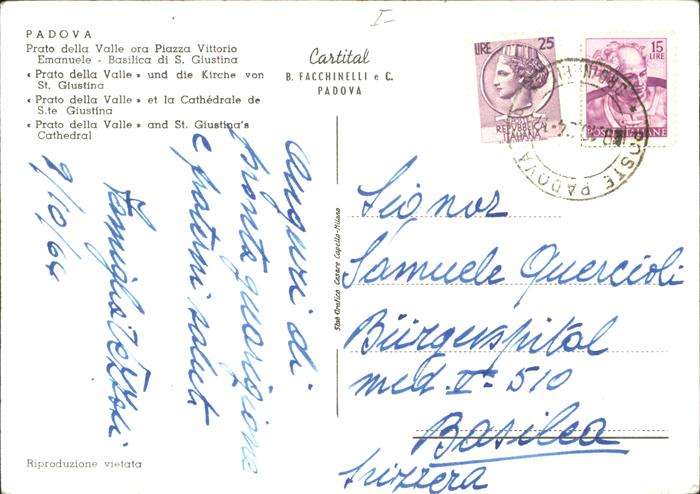 I-
PADOVA
Prato della Valle ora Piazza Vittorio
Emanuele - Basilica di S. Giustina
« Prato della Valle » und die Kirche von
St. Giustina
« Prato della Valle » et la Cathédrale de
S.te Giustina
« Prato della Valle » and St. Giustina's
Cathedral
Cartital
B. FACCHINELLI e C.
PADOVA
LIRE 25
REPVBBLICA
ITALIANA
15
LIRE
POSTE ITALIANE
POSTE PADOVA
Auguri di
pronta guarigione
e fraterni saluti
Famiglia
9/10/64
Stab. Grafico Cesare Capello - Milano
Signor
Samuele Quercioli
Bürgerspital
med. II= 510
Basilea
Svizzera
Riproduzione vietata